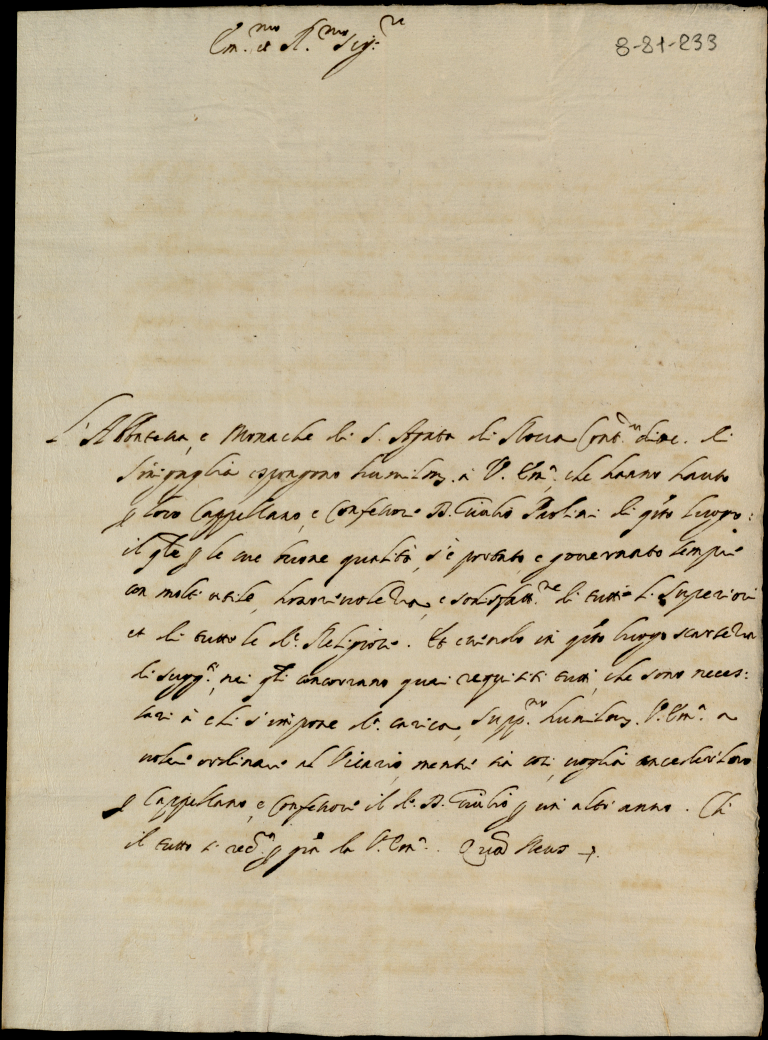 Em.mo et R.mo Sig.re
8-81-233
L'Abbatessa, e Monache di S. Agata di Rocca Cont.da dioc. di
Sinigaglia espongono humilm. à V. Em.a che hanno hauto
p loro Cappellano, e Confessore D. Giulio Paolini di q.to luogo:
il q.le p le sue buone qualità, s'è portato, e governato sempre
con molti utile, honorevolezza, e sodisfatt.ne di tutti li Superiori
et di tutte le d.e Religiose. Et essendo in q.to luogo scarsezza
di sugg.ti, nei q.li concorrano quei requisiti tutti, che sono neces:
sari à chi s'impone d.a carica, supp.no humilm. V. Em.a a
voler ordinare al Vicario, mentre sia così, voglia conceder loro
p Cappellano, e Confessore il d.o D. Giulio p un altr'anno. Ch
il tutto si rec.rà p gra la V. Em.a. Quam Deus